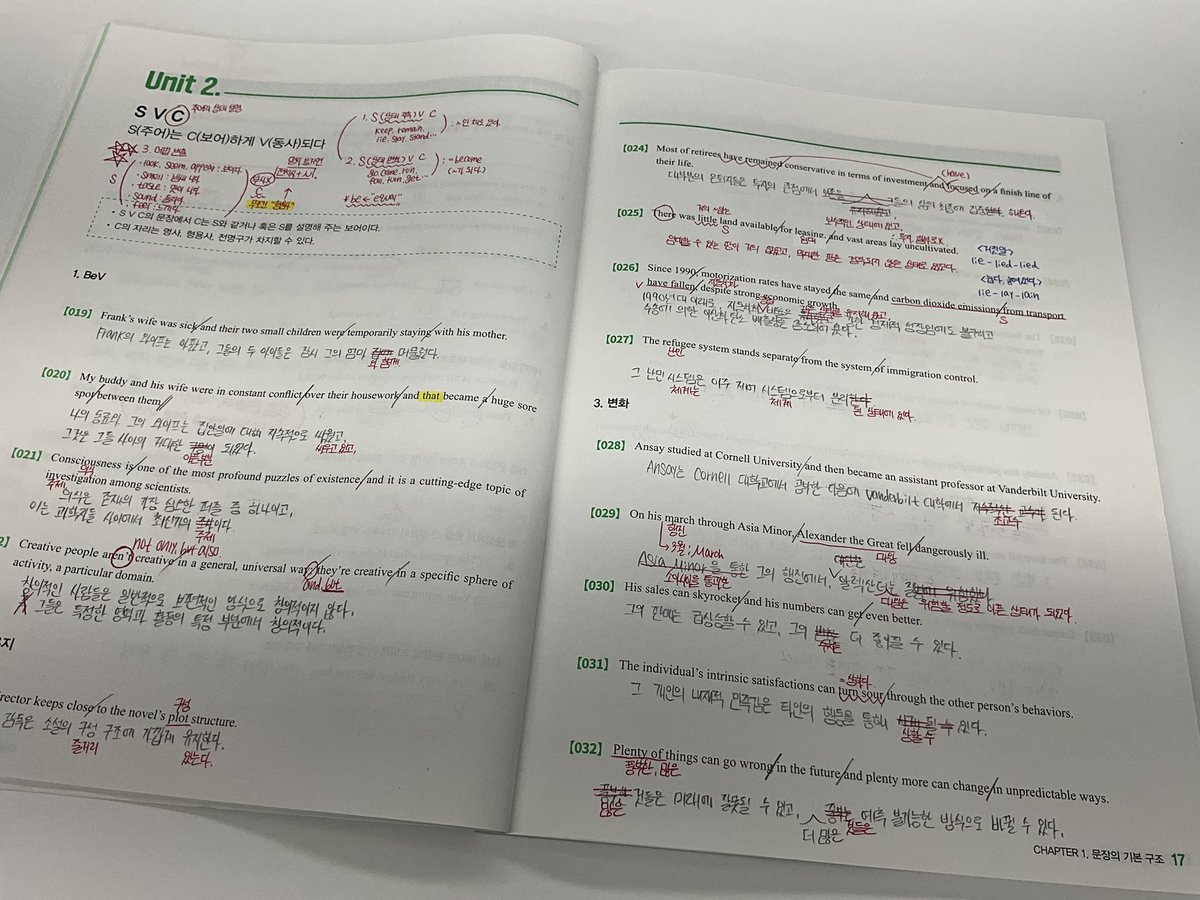 Unit 2.
S V C 주어의 상태 설명
S(주어)는 C(보어)하게 V(동사)되다
1. S(상태 유지) V C
keep, remain,
lie, stay, stand...
: ~인 채로 있다.
2. S(상태 변화) V C
go, come, run,
fall, turn, get...
: = become
(~가 되다.)
* be는 "equal"
3. 어법 빈출
S
· look, seem, appear : 보이다.
· smell : 냄새 나다.
· taste : 맛이 나다.
· sound : 들리다.
· feel : 느끼다.
부사X
C
무조건 "형용사"
• S V C의 문장에서 C는 S와 같거나 혹은 S를 설명해 주는 보어이다.
• C의 자리는 명사, 형용사, 전명구가 차지할 수 있다.
1. BeV
[019] Frank's wife was sick and their two small children were temporarily staying with his mother.
Frank의 와이프는 아팠고, 그들의 두 아이들은 잠시 그의 엄마 머물렀다.
와 함께
[020] My buddy and his wife were in constant conflict over their housework and that became a huge sore
spot between them
나의 동료와 그의 와이프는 집안일에 대해 지속적으로 싸웠고,
싸우고 있고,
그것은 그들 사이의 거대한 이 되었다.
[021] Consciousness is one of the most profound puzzles of existence and it is a cutting-edge topic of
의식
investigation among scientists.
주제
의식은 존재의 가장 심오한 퍼즐 중 하나이고,
이는 과학자들 사이에서 최신의 이다.
주제
not only, but also
2] Creative people aren't creative in a general, universal way; they're creative in a specific sphere of
and but
activity, a particular domain.
창의적인 사람들은 일반적으로 보편적인 방식으로 창의적이지 않다.
그들은 특정한 영역과 활동의 특정 부분에서 창의적이다.
지
구성
rector keeps close to the novel's plot structure.
감독은 소설의 구성 구조에 가깝게 유지한다.
줄거리
있는다.
[024] Most of retirees have remained conservative in terms of investment and focused on a finish line of
(have)
their life.
대부분의 은퇴자들은 투자의 관점에서 그들의 삶의 최종에 집중 하는다.
보수적인 상태에 있고,
거의 없는
[025] There was little land available for leasing, and vast areas lay uncultivated.
S
임대할 수 있는 땅이 거의 없었고, 막대한 땅은 경작되지 않은 상태로 있었다.
<거짓말>
lie - lied - lied
<눕다, 놓여있다>
lie - lay - lain
[026] Since 1990, motorization rates have stayed the same and carbon dioxide emissions from transport
S
V have fallen, despite strong economic growth.
[027] The refugee system stands separate from the system of immigration control.
난민
그 난민 시스템은 이주 제어 시스템으로부터 분리
체계는
체계
된 상태에 있다.
3. 변화
[028] Ansay studied at Cornell University and then became an assistant professor at Vanderbilt University.
Ansay는 Cornell 대학교에서 공부한 다음에 Vanderbilt 대학에서 된다.
조교수
[029] On his march through Asia Minor, Alexander the Great fell dangerously ill.
행진
→ 3월; March
대왕
Asia Minor을 통한 그의 행진에서, 알렉산더는
소아시아를 통과한
대왕은 위험할 정도로 아픈 상태가 되었다.
[030] His sales can skyrocket and his numbers can get even better.
그의 판매는 급상승할 수 있고, 그의 더 좋아질 수 있다.
수치는
= 상하다.
[031] The individual's intrinsic satisfactions can turn sour through the other person's behaviors.
그 개인의 내재적 만족감은 타인의 행동을 통해 있다.
상할 수
[032] Plenty of things can go wrong in the future and plenty more can change in unpredictable ways.
풍부한, 많은
것들은 미래에 잘못될 수 있고, 예측 불가능한 방식으로 바뀔 수 있다.
많은
더 많은 것들은
CHAPTER 1. 문장의 기본 구조 17